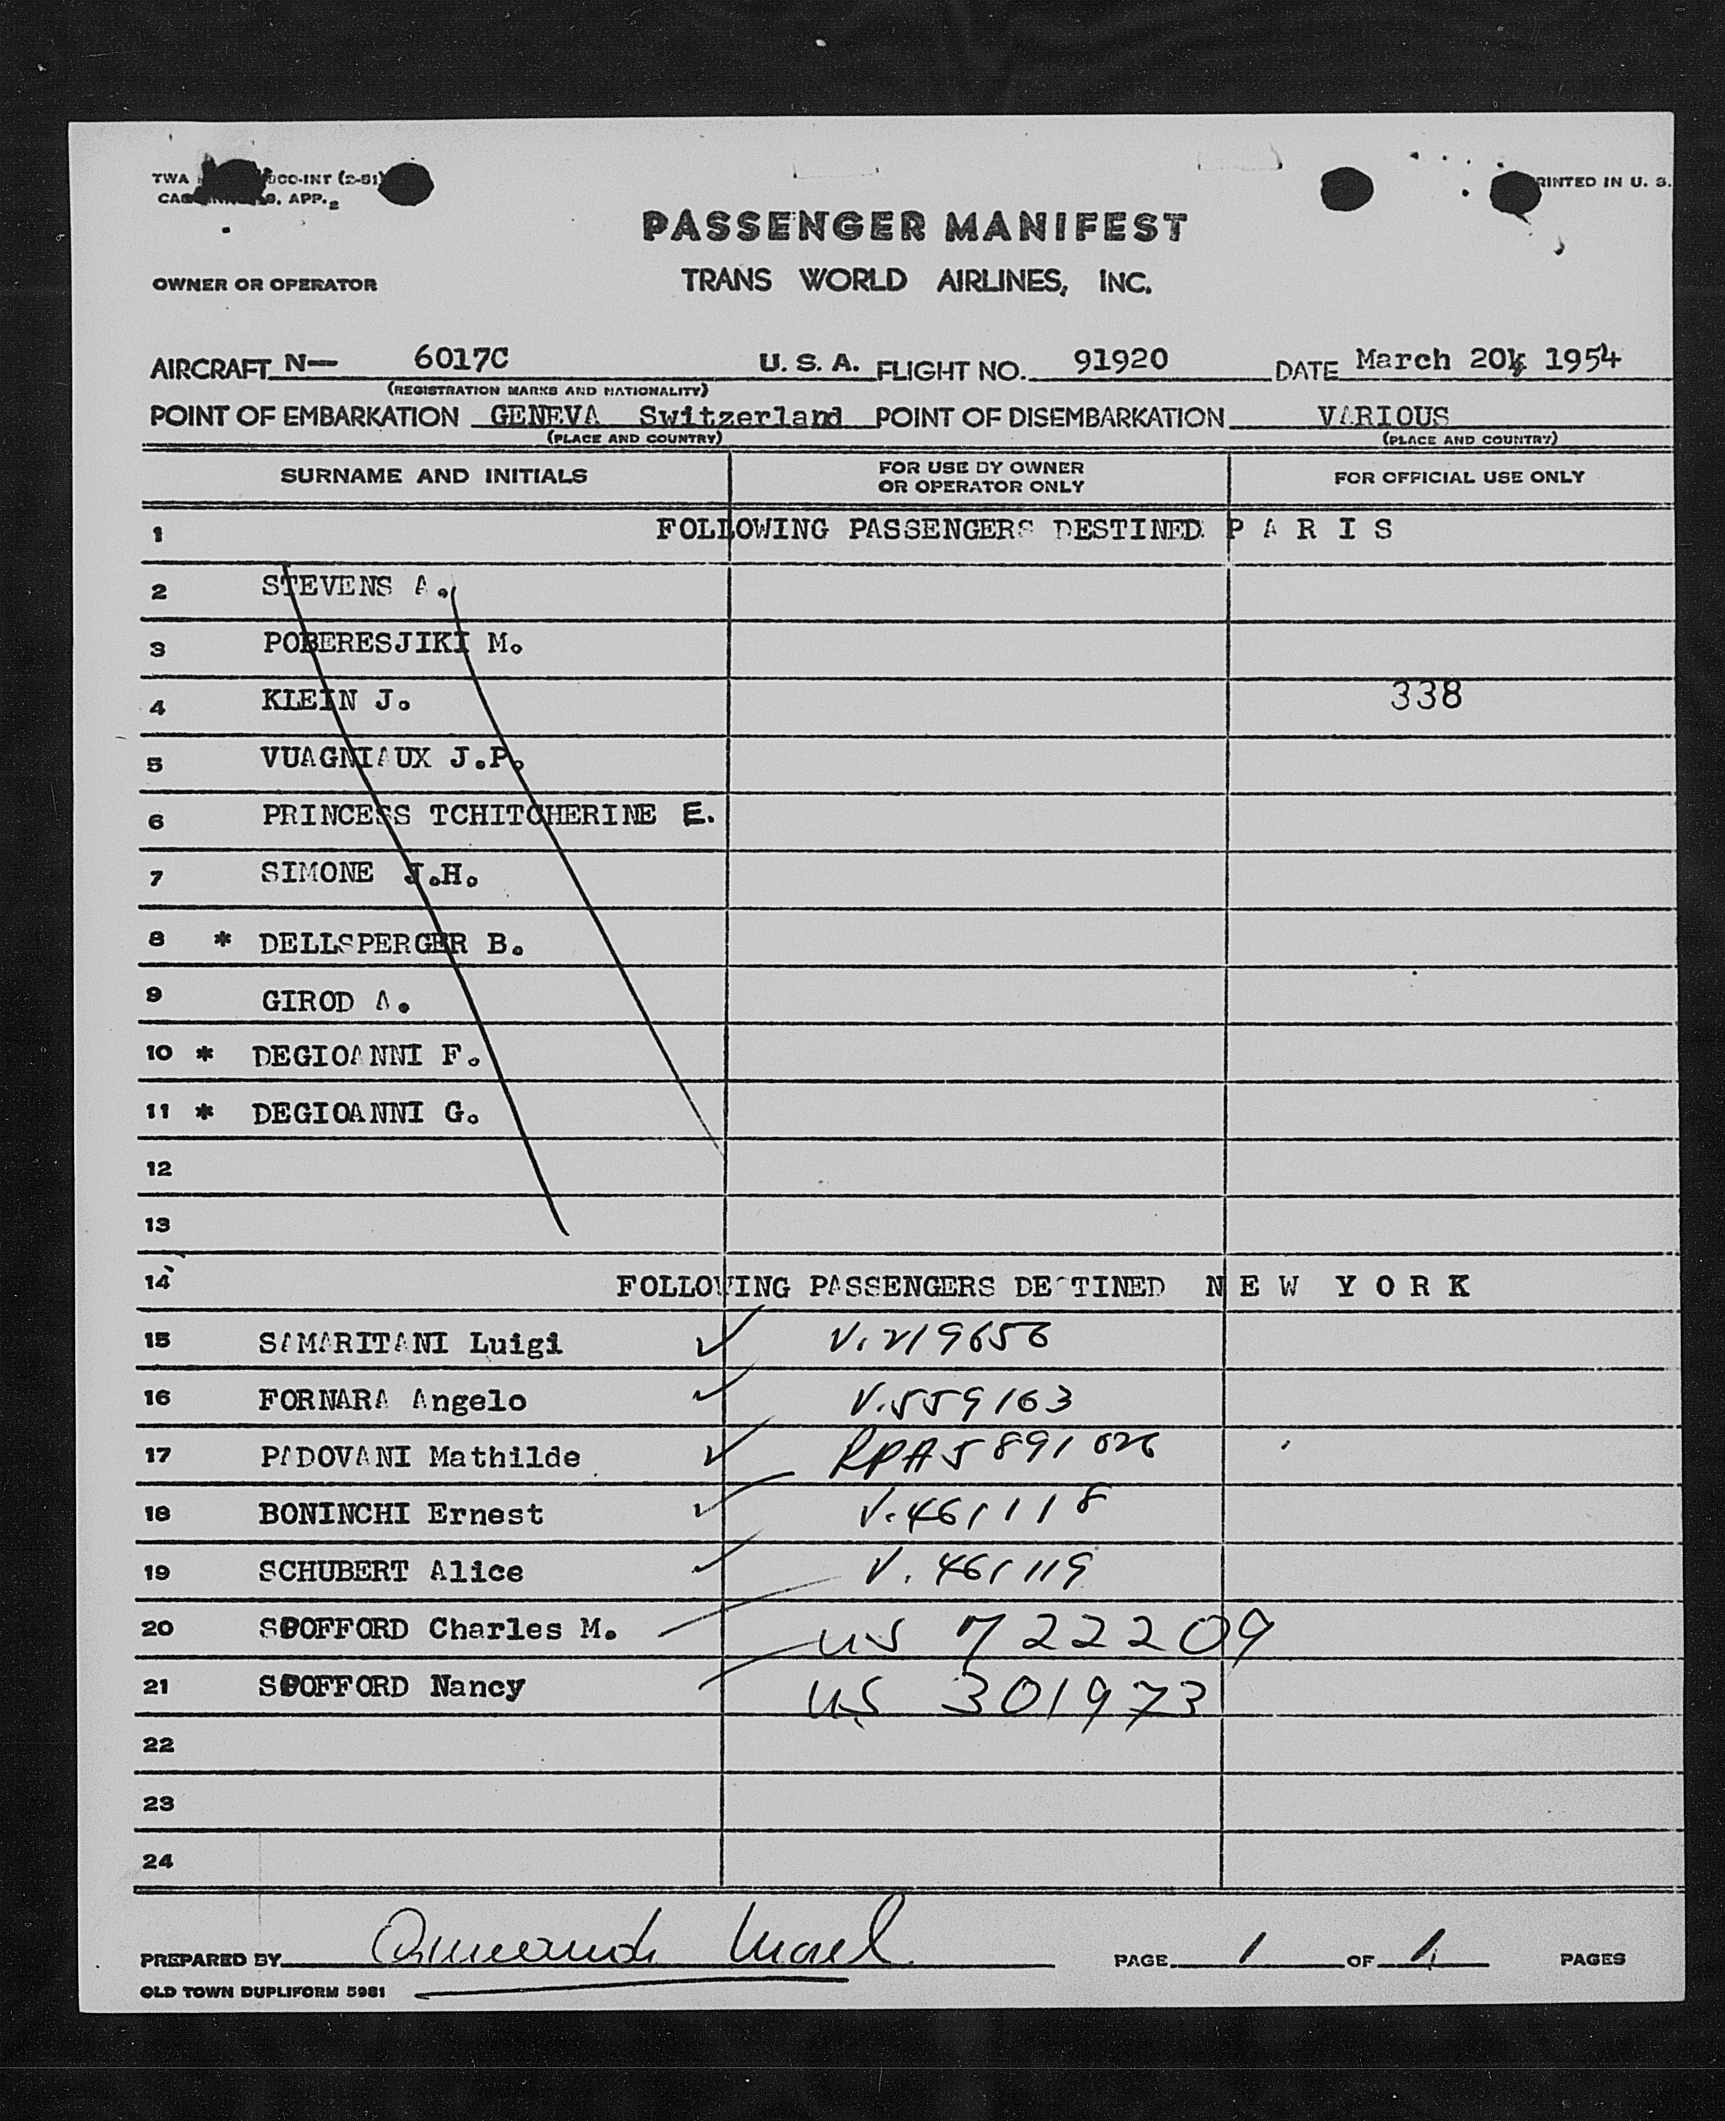 TWA
CC-INT (2-51)
PRINTED IN U. S.
APP.
PASSENGER MANIFEST
OWNER OR OPERATOR
TRANS WORLD AIRLINES, INC.
AIRCRAFT N— 6017C U. S. A. FLIGHT NO. 91920 DATE March 20 1954
(REGISTRATION MARKS AND NATIONALITY)
POINT OF EMBARKATION GENEVA Switzerland POINT OF DISEMBARKATION VARIOUS
(PLACE AND COUNTRY) (PLACE AND COUNTRY)
SURNAME AND INITIALS FOR USE BY OWNER OR OPERATOR ONLY FOR OFFICIAL USE ONLY
1 FOLLOWING PASSENGERS DESTINED P A R I S
2 STEVENS A.
3 POBERESJIKI M.
4 KLEIN J. 338
5 VUAGNIAUX J.P.
6 PRINCESS TCHITCHERINE E.
7 SIMONE J.H.
8 * DELLSPERGER B.
9 GIROD A.
10 * DEGIOANNI F.
11 * DEGIOANNI G.
12
13
14 FOLLOWING PASSENGERS DESTINED N E W Y O R K
15 SAMARITANI Luigi ✓ V. 219656
16 FORNARA Angelo ✓ V. 559163
17 PADOVANI Mathilde ✓ RPA 5891026
18 BONINCHI Ernest ✓ V. 461118
19 SCHUBERT Alice ✓ V. 461119
20 SPOFFORD Charles M. US 722209
21 SPOFFORD Nancy US 301973
22
23
24
PREPARED BY PAGE 1 OF 1 PAGES
OLD TOWN DUPLIFORM 5981